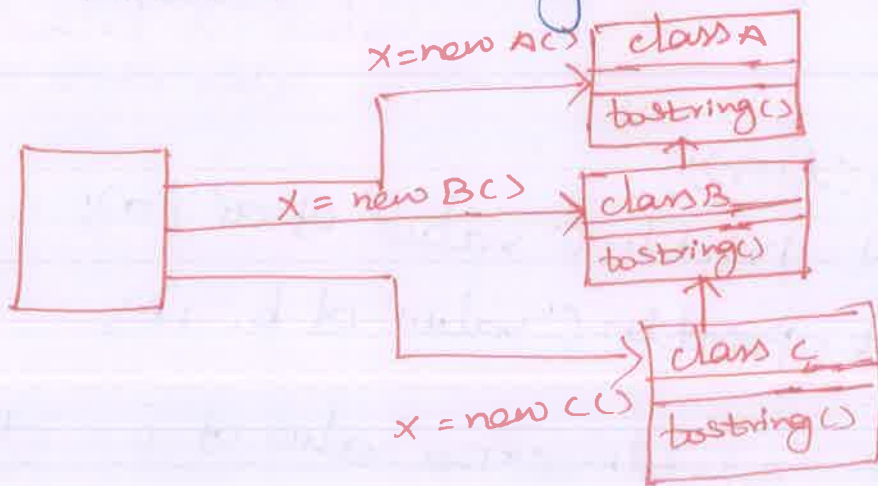 x=new A()
class A
tostring()
x = new B()
class B
tostring()
class C
x = new C()
tostring()